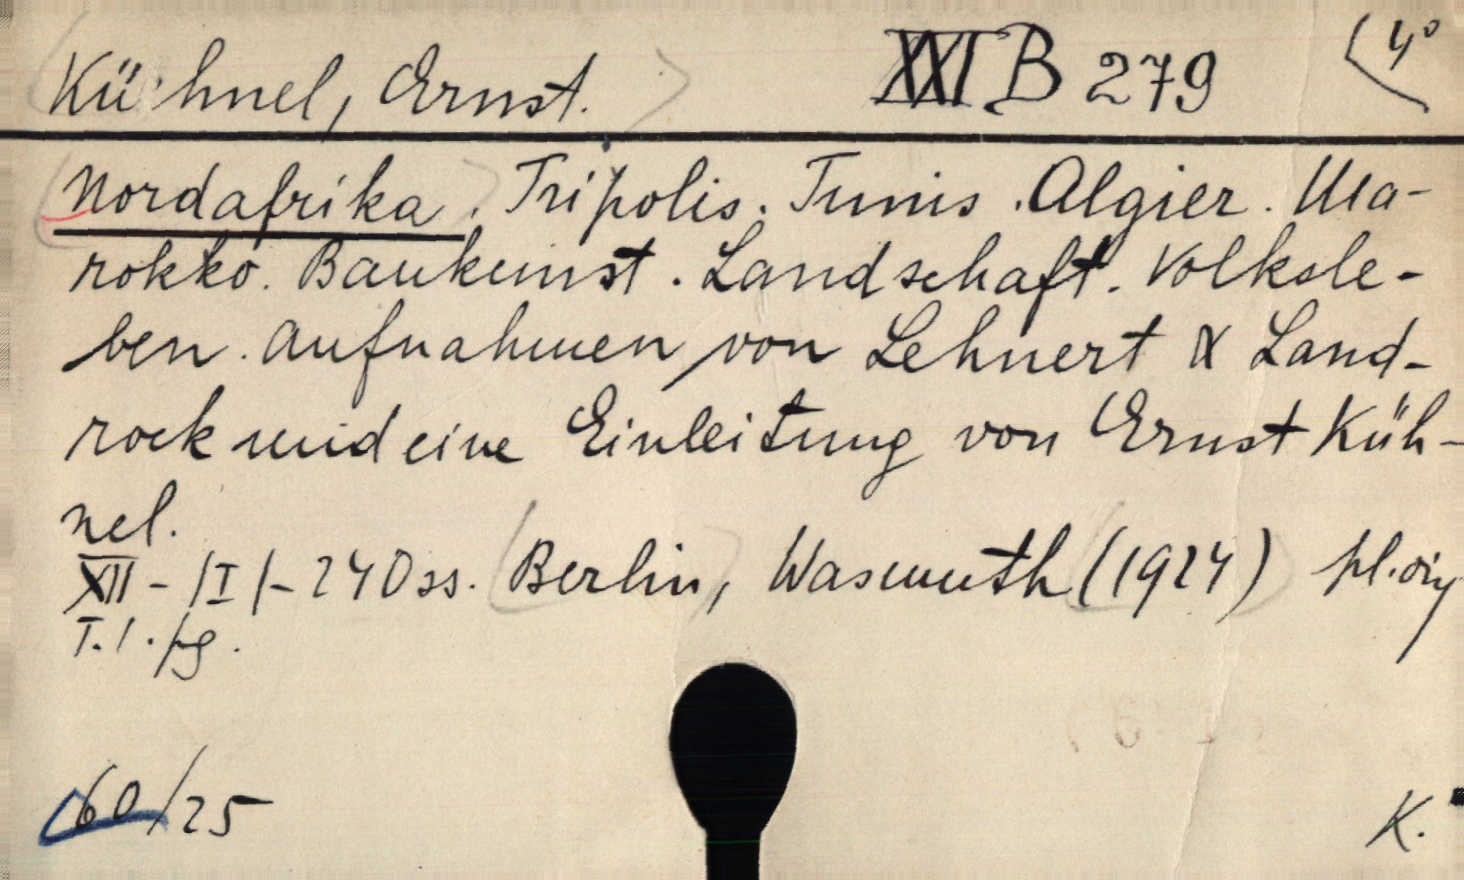 Kühnel, Ernst. XXI B 279 4°
Nordafrika. Tripolis. Tunis. Algier. Ma-
rokko. Baukunst. Landschaft. Volksle-
ben. Aufnahmen von Lehnert & Land-
rock und eine Einleitung von Ernst Küh-
nel.
XII - /I/ - 240 ss. Berlin, Wasmuth (1924)
T. l. pg.
60/25 K.